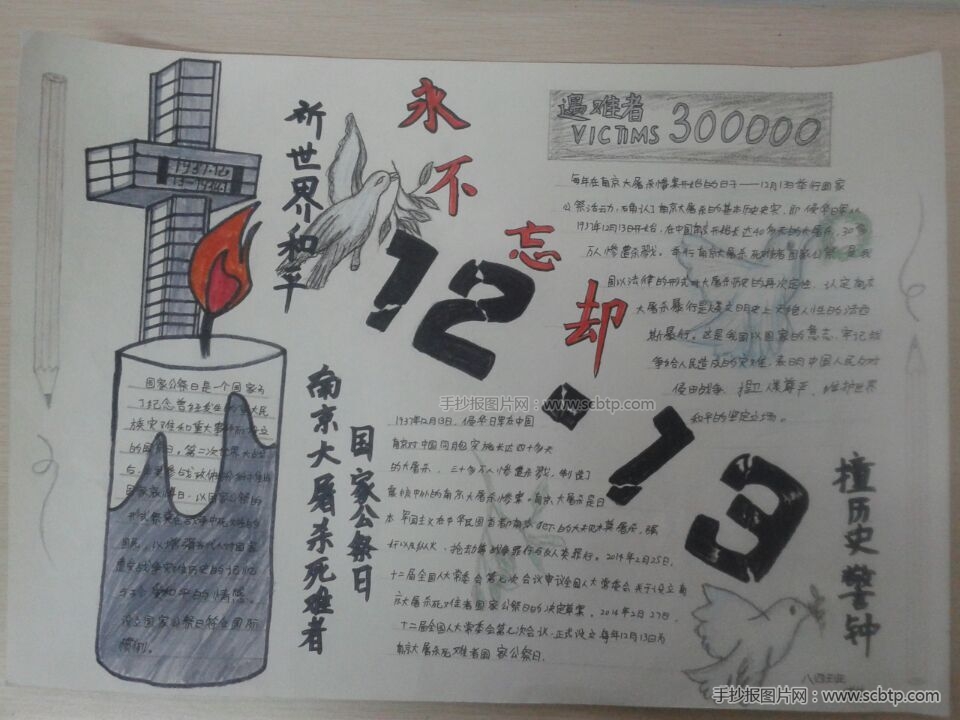 永不忘却
12·13
祈世界和平
1937.12
13-1938.1
遇难者
VICTIMS 300000
每年在南京大屠杀惨案开始的日子——12月13日举行国家
公祭活动，确认了南京大屠杀的基本历史史实，即侵华日军从
1937年12月13日开始，在中国南京开始长达40多天的大屠杀，30多
万人惨遭杀戮。举行南京大屠杀死难者国家公祭，是我
国以法律的形式对大屠杀历史的再次定性，认定南京
大屠杀暴行是
斯暴行。这是我国以国家的意志，牢记战
争给人民造成的灾难，表明中国人民反对
侵略战争、捍卫人类尊严、维护世界
和平的坚定立场。
国家公祭日是一个国家为
了纪念曾经发生的
民
族灾难
的国家日。第二次世界大战
国民，以增强
国家
遭受战争灾难历史的记忆
和平的情感。
设立国家公祭日符合国际
惯例。
南京大屠杀死难者
国家公祭日
1937年12月13日，侵华日军在中国
南京对中国同胞实施长达四十多天
的大屠杀，三十多万人惨遭杀戮，制造了
震惊中外的南京大屠杀惨案。南京大屠杀是日
本军国主义在中华民国首都南京
的大规模屠杀、强
奸以及纵火、抢劫等战争罪行与反人类罪行。2014年2月25日，
十二届全国人大常委会第七次会议审议全国人大常委会关于设立南
京大屠杀死难者国家公祭日的决定草案。2014年2月27日，
十二届全国人大常委会第七次会议，正式设立每年12月13日为
南京大屠杀死难者国家公祭日。
撞历史警钟
手抄报图片网：www.scbtp.com
手抄报图片网：www.scbtp.com